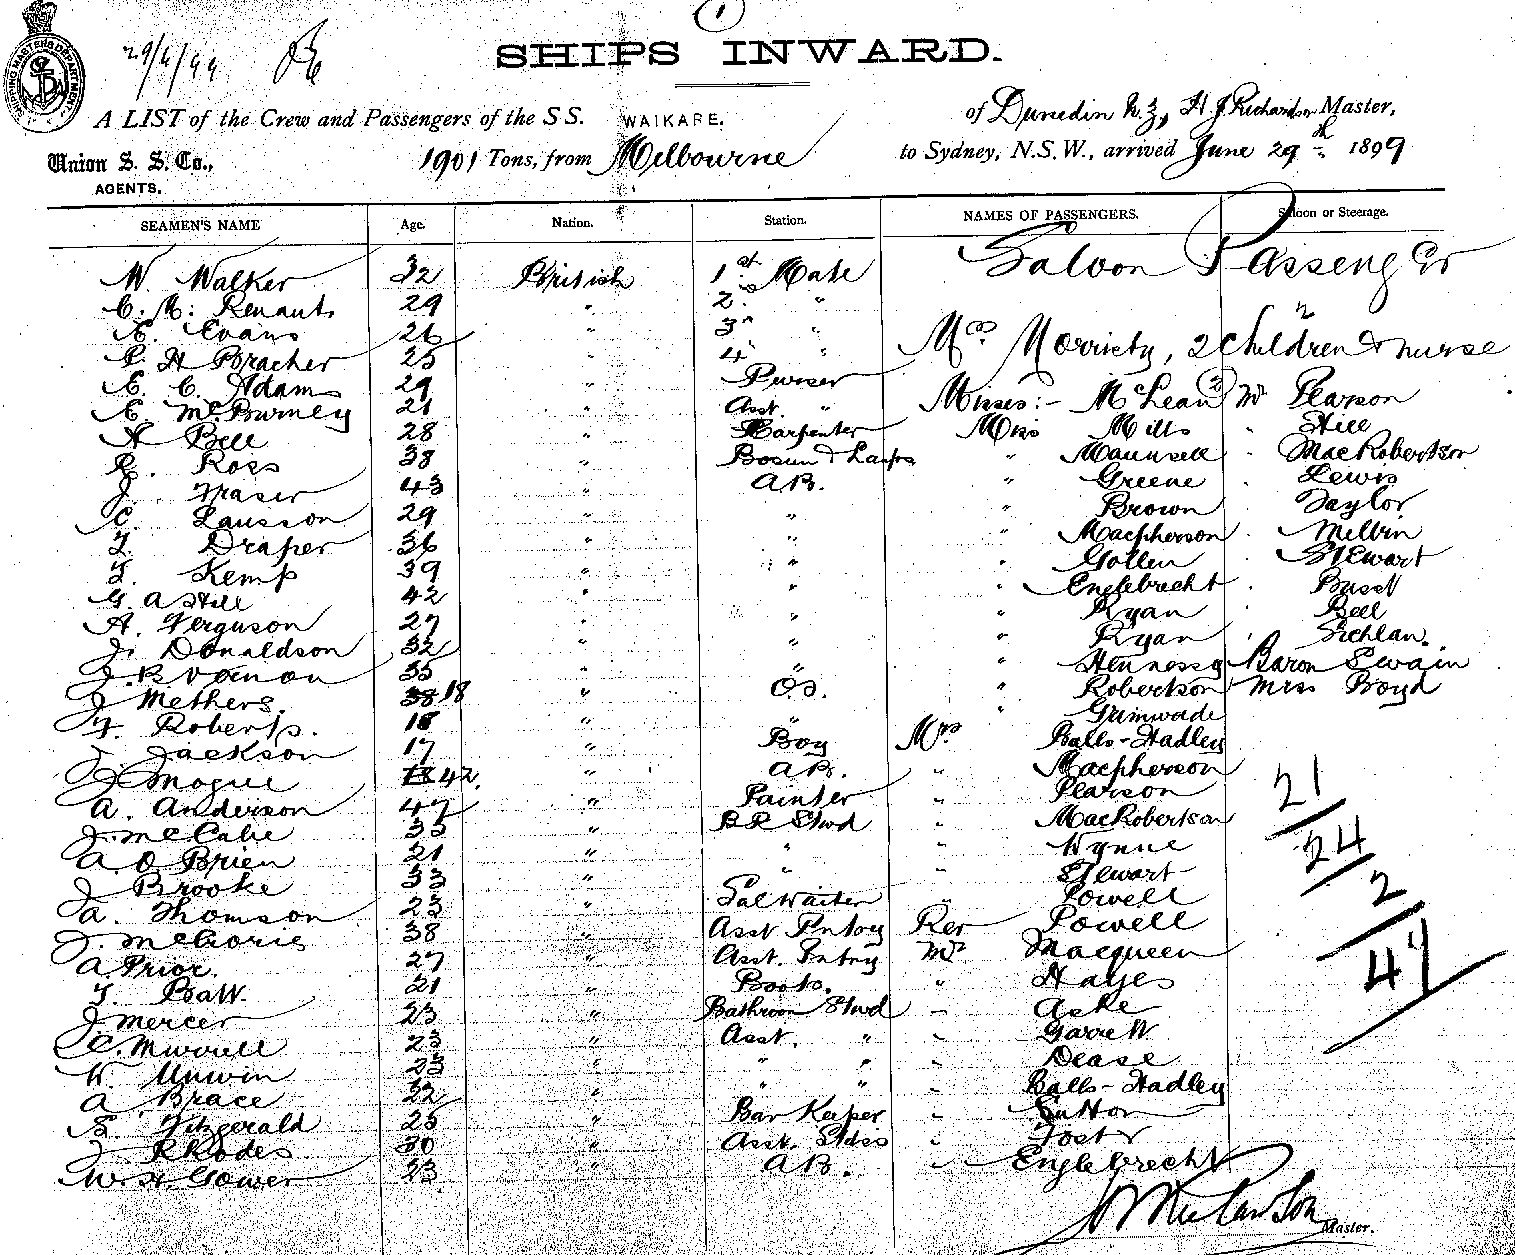 1
29/6/99
SHIPS INWARD.
A LIST of the Crew and Passengers of the S S. WAIKARE. of Dunedin N.Z, H J Richardson Master,
Union S. S. Co., AGENTS. 1901 Tons, from Melbourne to Sydney, N.S.W., arrived June 29th 1899
SEAMEN'S NAME Age. Nation. Station. NAMES OF PASSENGERS. Saloon or Steerage.
Saloon Passenger
W Walker 32 British 1st Mate
C. M. Renaut 29 " 2nd "
E. Evans 26 " 3rd " Mrs Morriety, 2 Children & nurse
P. H Bracher 25 " 4 "
E. C. Adams 29 " Purser Misses:- McLean (2) Mr Pearson
E. McBurney 21 " Asst. " Miss Mills " Hill
H Bell 28 " Carpenter " Maunsell " MacRobertson
R. Ross 38 " Bosun & Lamps " Greene " Lewis
J. Fraser 43 " A.B. " Brown Taylor
C. Lausson 29 " " " Macpherson " Melvin
T. Draper 36 " " " Gollen " Stewart
T. Kemp 39 " " " Englebrecht " Busst
G. A Hill 42 " " " Ryan " Bell
A. Ferguson 27 " " " Ryan "
J. Donaldson 32 " " " Hennessy Baron Swain
J. B Vernon 35 " " " Robertson Miss Boyd
J Methers. 38 18 " O.S. " Grimwade
F. Roberts. 18 " " Mrs Balls-Hadley
J. Jackson 17 " Boy " Macpherson
J Mogue 42 " A.B. " Pearson
A. Anderson 47 " Painter " MacRobertson
J. McCabe 35 " B R Stwd " Wynne
A O Brien 21 " " " Stewart
J Brooke 33 " " " Powell
A. Thomson 23 " Sal Waiter Rev Powell
J. McGorie 38 " Asst Pntry Mr Macqueen
A. Prior. 27 " Asst. Pntry " Hayes
T. Batt. 21 " Boots. " Aske
J. Mercer 23 " Bathroom Stwd " Garrett
C. Murrell 23 " Asst. " " Dease
W. Unwin 23 " " " " Balls-Hadley
A Brace 22 " " " " Sutton
E. Fitzgerald 25 " Bar Keeper " Foster
J. Rhodes 30 " Asst. Stdss " Englebrecht
Wm H. Gower 23 " A B.
21
24
2
47
H J Richardson Master.